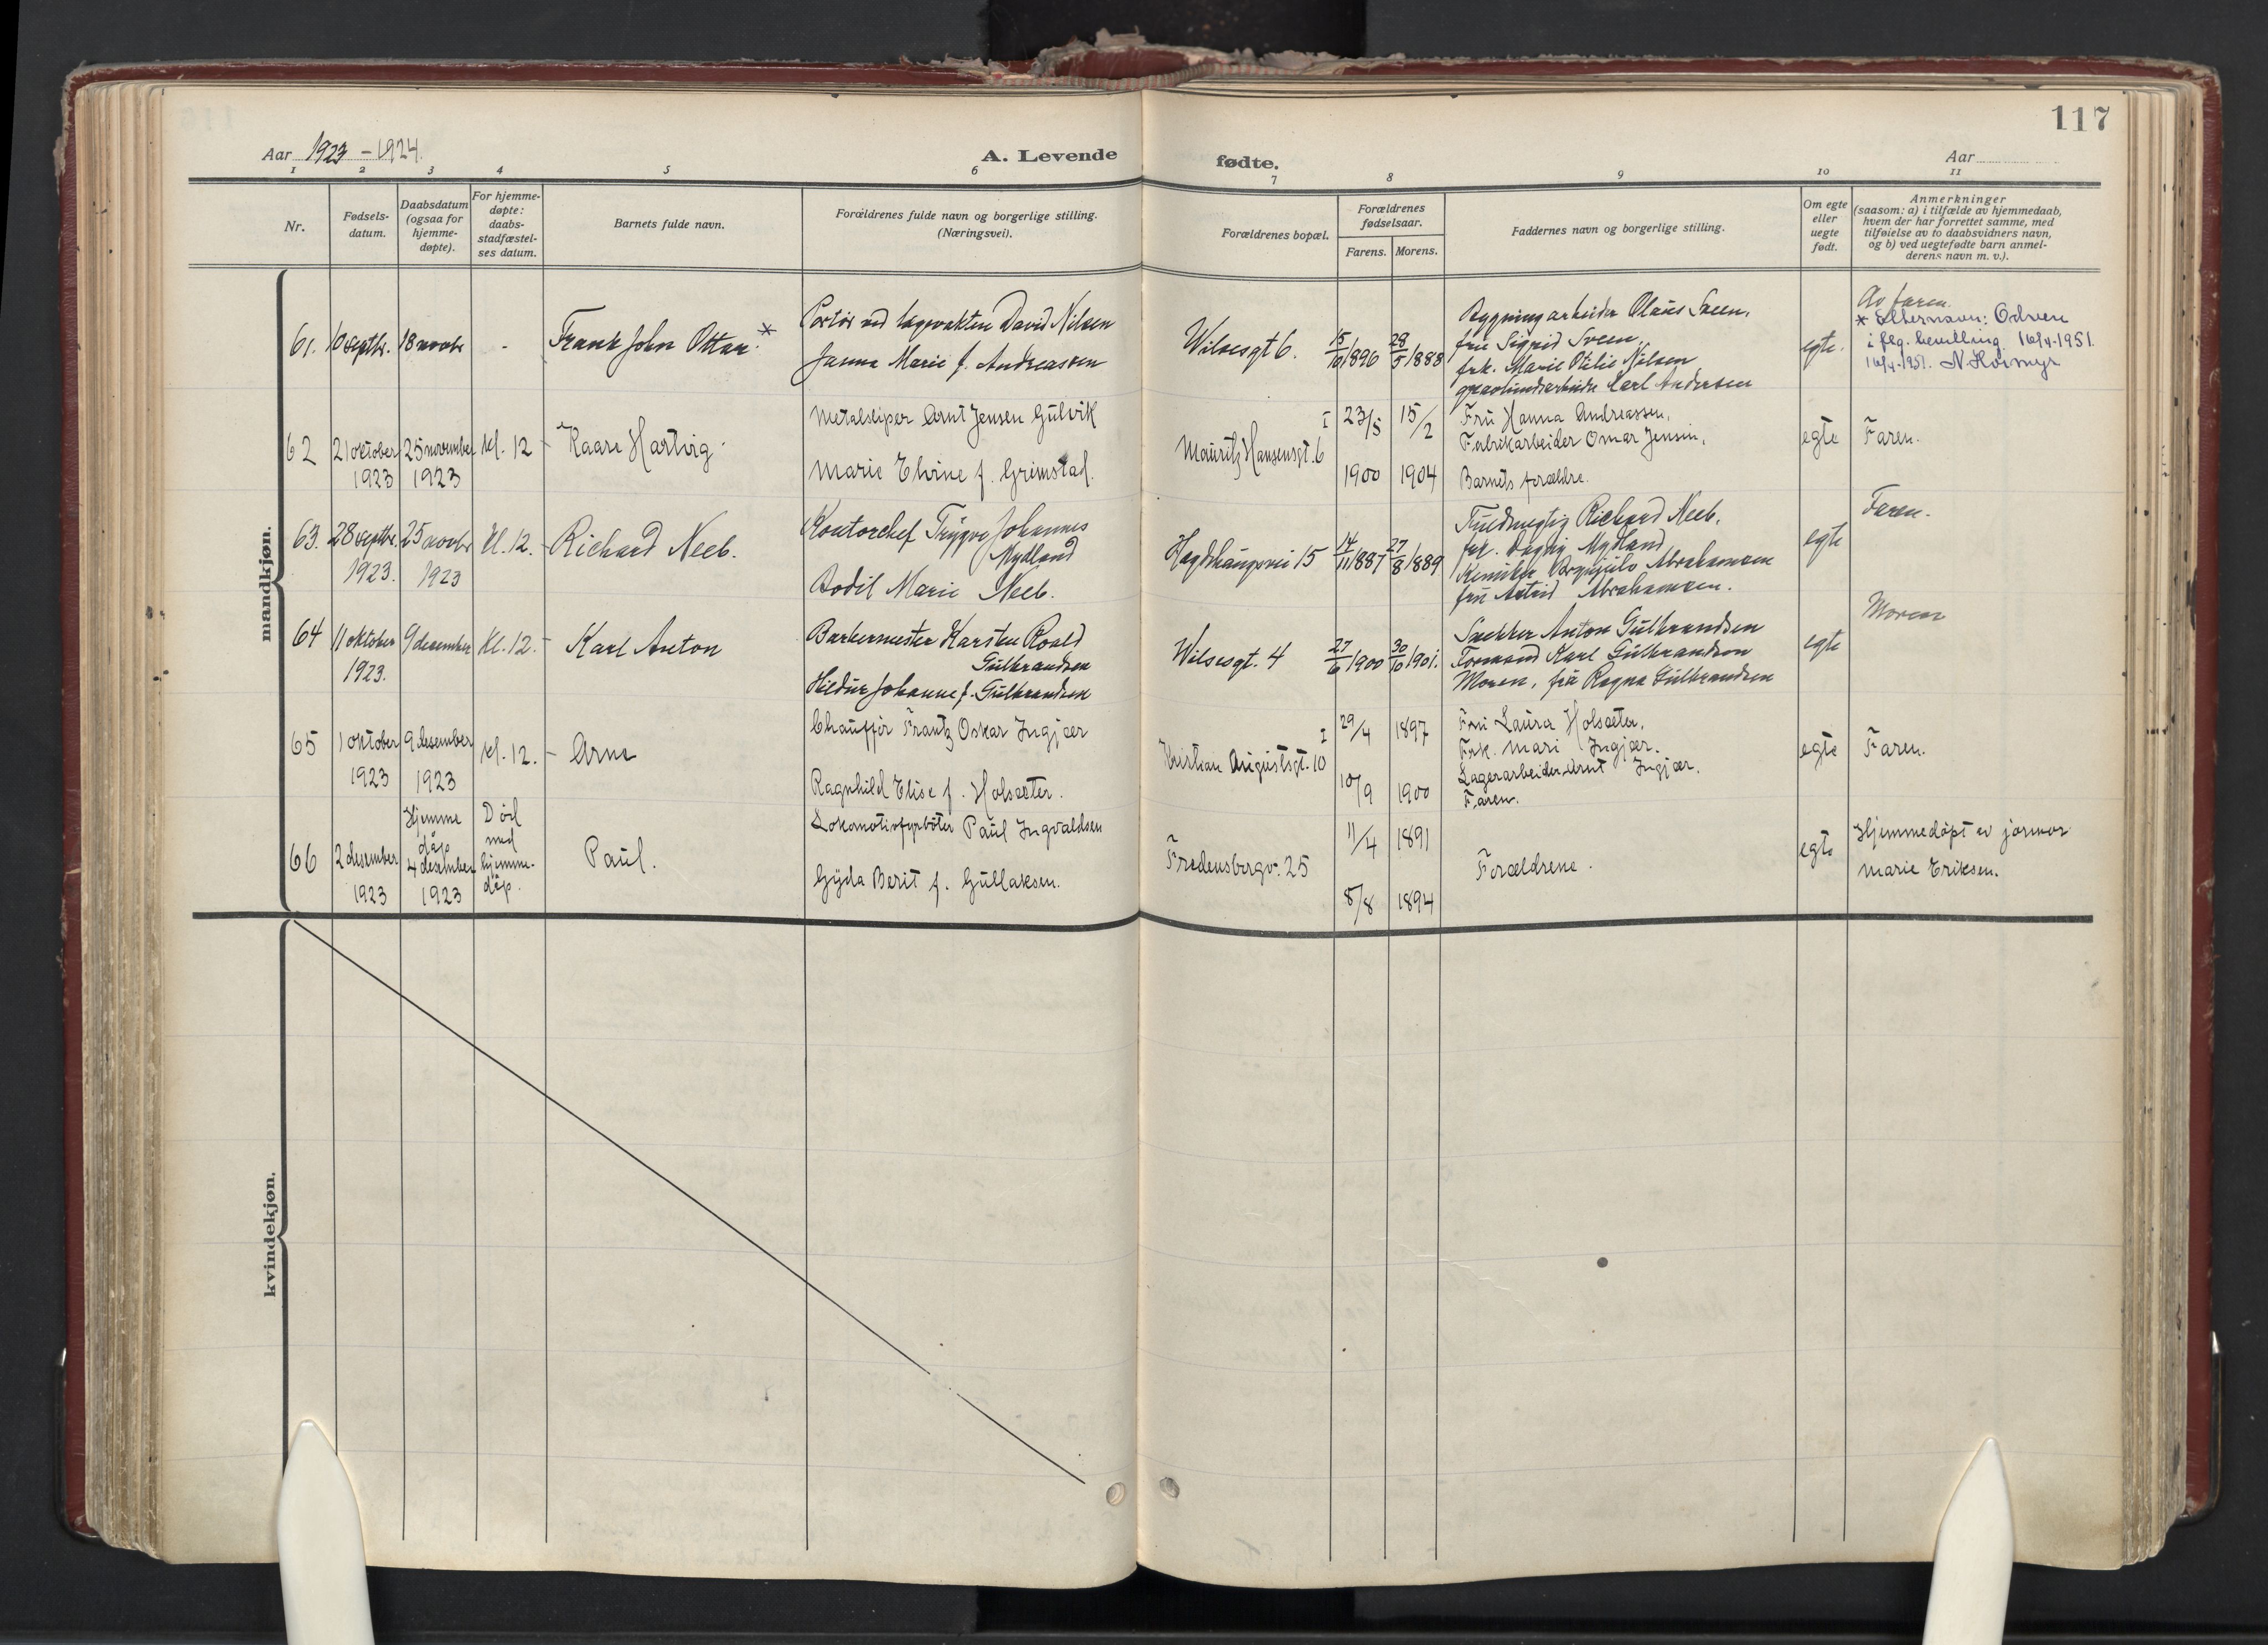 117
Aar 1923 - 1924.
A. Levende fødte.
Aar
1 2 3 4 5 6 7 8 9 10 11
Nr.
Fødsels-
datum.
Daabsdatum
(ogsaa for
hjemme-
døpte).
For hjemme-
døpte:
daabs-
stadfæstel-
ses datum.
Barnets fulde navn.
Forældrenes fulde navn og borgerlige stilling.
(Næringsvei).
Forældrenes bopæl.
Forældrenes
fødselsaar.
Farens. Morens.
Faddernes navn og borgerlige stilling.
Om egte
eller
uegte
født.
Anmerkninger
(saasom: a) i tilfælde av hjemmedaab,
hvem der har forrettet samme, med
tilføielse av to daabsvidners navn,
og b) ved uegtefødte barn anmel-
derens navn m. v.).
mandkjøn.
61.
10 septbr.
18 novbr
-
Frank John Ottar. *
Portør ved lægevakten David Nilsen
Janna Marie f. Andreassen
Wilsesgt 6.
15/10 1896
28/5 1888
Bygningarbeider Olaus Sveen,
fru Sigrid Sveen,
frk. Marie Otilie Nilsen
gravlundsarbeider Carl Andersen
egte.
Av faren.
* Etternavn:
i flg. bevilling 16/4-1951.
16/4-1951. N.
62
21 oktober
1923
25 november
1923
Kl. 12 -
Kaare Hartvig
Metalsliper Arnt Jensen Gulvik
Marie Elvine f. Grimstad.
I
Mauritz Hansensgt. 6
23/8
1900
15/2
1904
Fru Hanna Andreassen,
Fabrikarbeider Omar Jensen,
Barnets forældre.
egte
Faren.
63.
28 septbr.
1923.
25 novbr
1923
Kl. 12. -
Richard Neeb.
Kontorchef Trygve Johannes
Mydland
Bodil Marie Neeb.
15
14/11 1887
27/8 1889
Fuldmægtig Richard Neeb,
frk. Dagny Mydland
Kemiker Abrahamsen
fru Astrid Abrahamsen.
egte
Faren.
64
11 oktober
1923.
9 desember
Kl. 12. -
Karl Anton
Barbermester Karsten Roald
Gulbrandsen
Hildur Johanne f. Gulbrandsen
Wilsesgt. 4
27/6 1900
30/10 1901.
Snekker Anton Gulbrandsen
Formand Karl Gulbrandsen
Moren, fru Ragna Gulbrandsen
egte
Moren
65
1 oktober
1923
9 desember
1923
Kl. 12. -
Arne
Chauffør Frantz Oskar Ingjær
Ragnhild Elise f. Holsæter.
I
Kristian Augustsgt. 10
29/4 1897
10/9 1900
Fru Laura Holsæter,
Frk. Mari Ingjær.
Lagerarbeider Arnt Ingjær,
Faren.
egte
Faren.
66
2 desember
1923
Hjemme
dåp
4 desember
1923
Død
med
hjemme-
dåp.
Paul.
Lokomotivfyrbøter Paul Ingvaldsen
Gyda Berit f. Gullaksen.
Fredensborgv. 25
11/4 1891
8/8 1894
Forældrene.
egte
Hjemmedøpt av jormor
Marie Eriksen.
kvindekjøn.